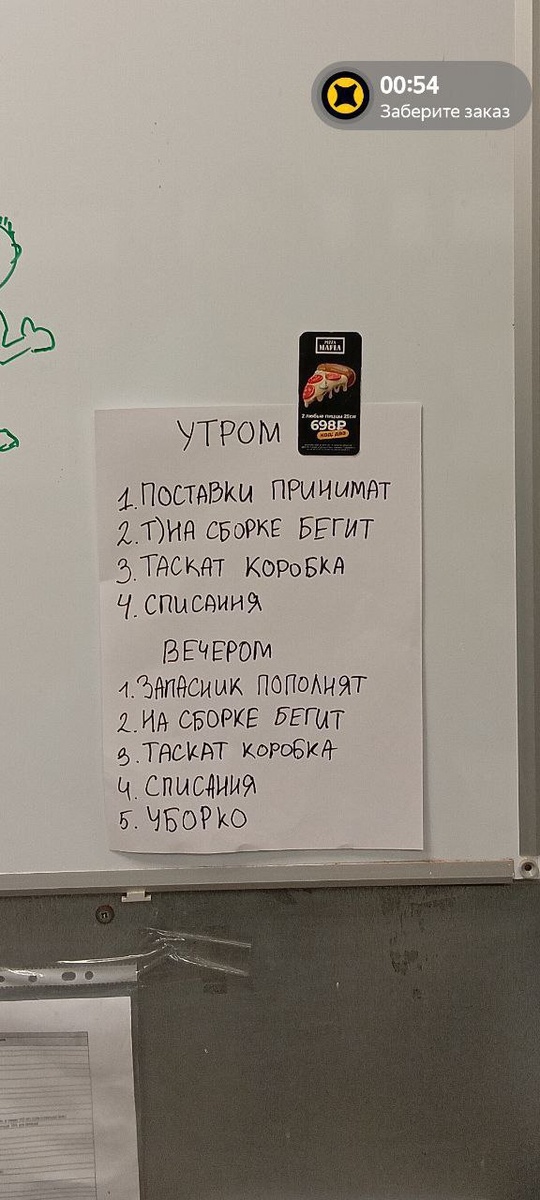 00:54
Заберите заказ
PIZZA
MAFIA
2 любые пиццы 25см
698₽
УТРОМ
1. ПОСТАВКИ ПРИНИМАТ
2. Т) НА СБОРКЕ БЕГИТ
3. ТАСКАТ КОРОБКА
4. СПИСАНИЯ
ВЕЧЕРОМ
1. ЗАПАСНИК ПОПОЛНЯТ
2. НА СБОРКЕ БЕГИТ
3. ТАСКАТ КОРОБКА
4. СПИСАНИЯ
5. УБОРКО